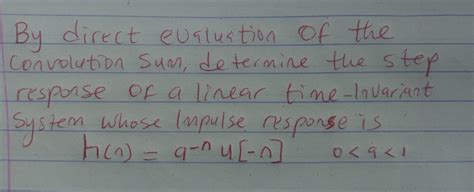 By direct evaluation of the
Convolution Sum, determine the step
response of a linear time-Invariant
System whose Impulse response is
h(n) = a^-n u[-n]   0<a<1